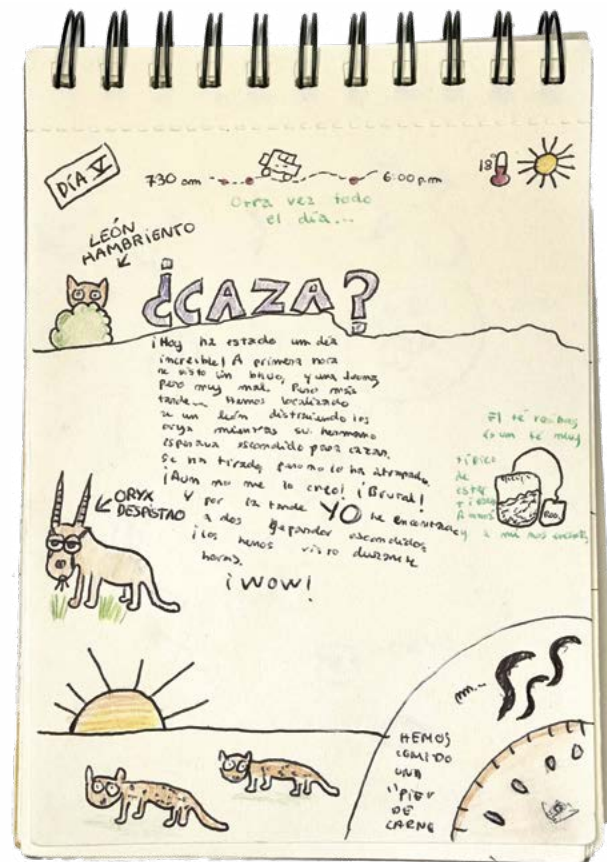 DÍA V
7:30 am
6:00 p.m
18°
Otra vez todo
el día...
LEÓN
HAMBRIENTO
¿CAZA?
¡Hoy ha estado un día
increíble! A primera hora
he visto un búho, y una
pero muy mal. Pero más
tarde... Hemos localizado
a un león distrayendo los
oryx mientras su hermano
esperava escondido para cazar.
Se ha tirado, pero no lo ha atrapado.
¡Aun no me lo creo! ¡Brutal!
Y por la tarde YO he encontrado
a dos gepardos escondidos
¡Los hemos visto durante
horas.
¡WOW!
ORYX
DESPISTAO
El té roibos
es un té muy
típico
de
estas
tierras
A mamá
y a mi nos encanta
Roo.
mm...
HEMOS
COMIDO
UNA
"PIE"
DE
CARNE